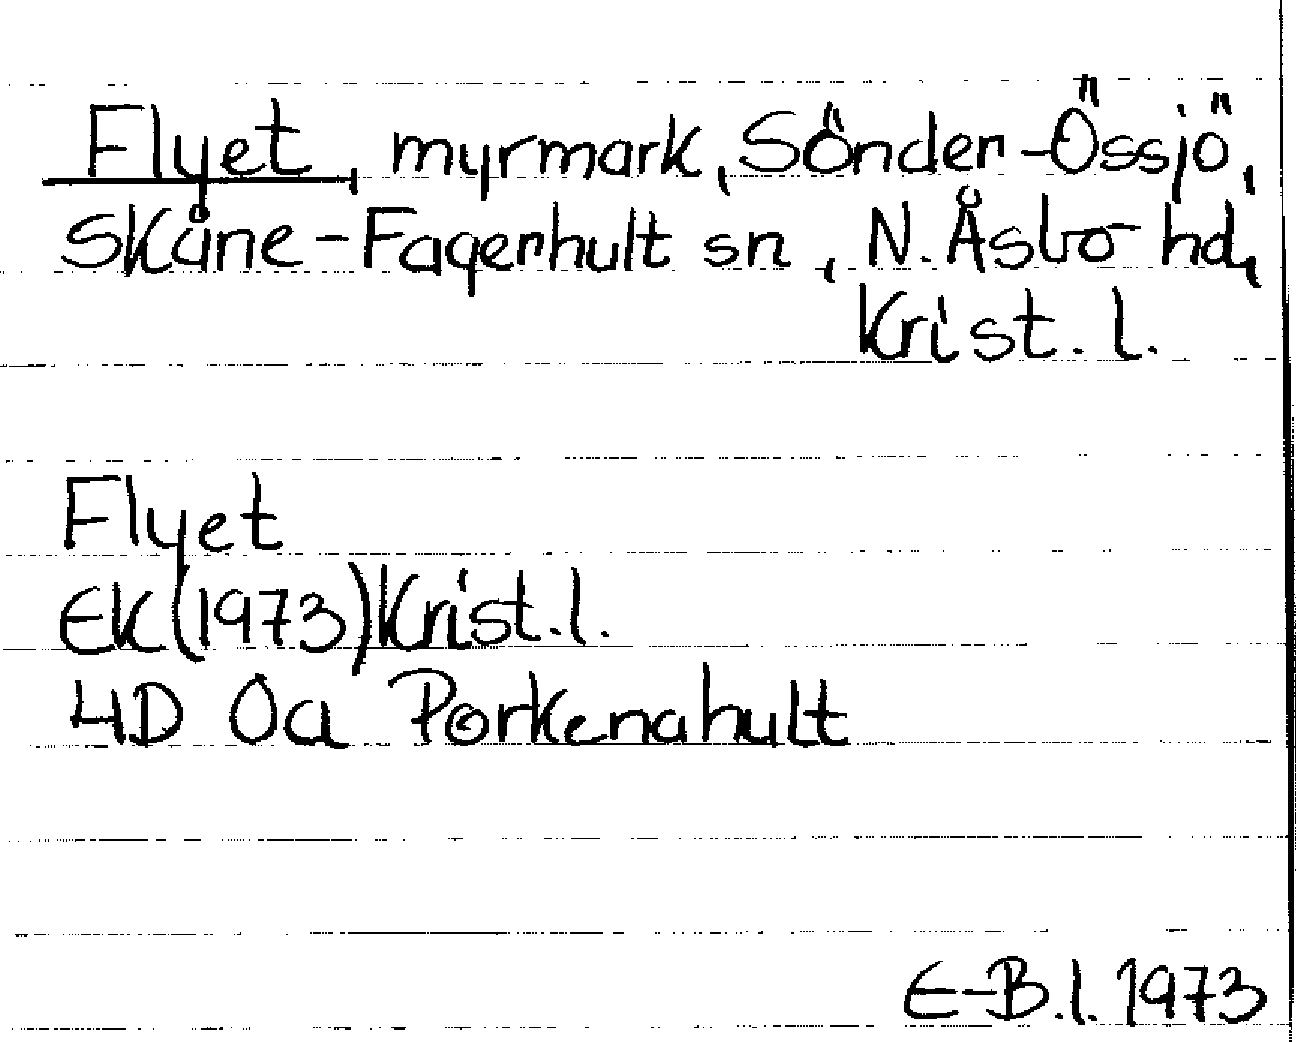 Flyet, myrmark, Sönder-Össjö,
Skåne-Fagerhult sn, N. Åsbo hd,
Krist. l.
Flyet
EK (1973) Krist. l.
4D 0a Porkenahult
E-B. l. 1973